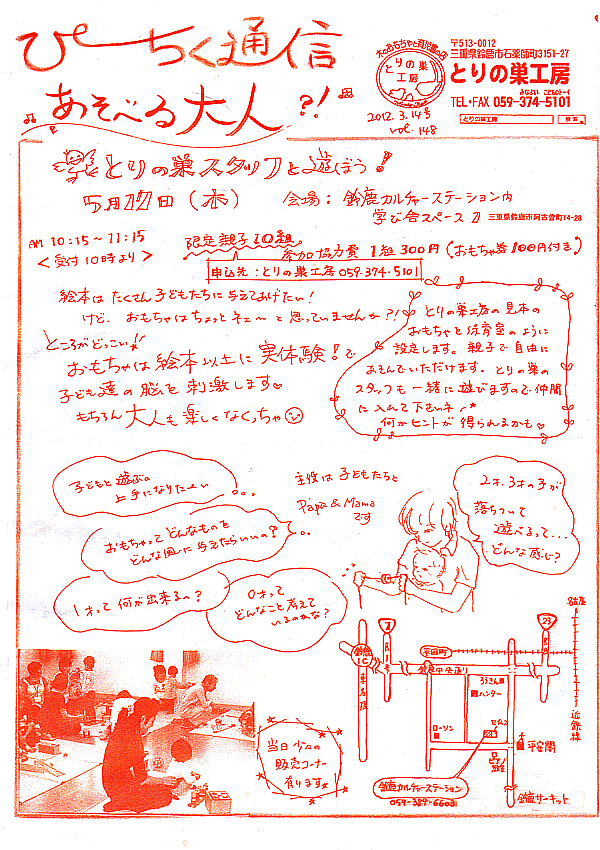 ぴーちく通信
あそべる大人?!
木のおもちゃと育児書の店
とりの巣
工房
2012.3.14号
vol.148
〒513-0012
三重県鈴鹿市石薬師町3151-27
とりの巣工房
みなよい こどものトイ
TEL・FAX 059-374-5101
とりの巣工房 検索
とりの巣スタッフと遊ぼう!
5月17日(木) 会場:鈴鹿カルチャーステーション内
学び舎スペース2 三重県鈴鹿市阿古曽町14-28
AM 10:15〜11:15
<受付10時より>
限定親子10組
参加協力費 1組300円(おもちゃ券100円付き)
申込先:とりの巣工房 059-374-5101
絵本はたくさん子どもたちに与えてあげたい!
けど、おもちゃはちょっとネェ〜と思っていませんか?!
ところがどっこい!
おもちゃは絵本以上に実体験!で
子ども達の脳を刺激します♡
もちろん大人も楽しくなくっちゃ
とりの巣工房の見本の
おもちゃを保育室のように
設定します。親子で自由に
あそんでいただけます。とりの巣の
スタッフも一緒に遊びますので仲間
に入れて下さいネ
何かヒントが得られるかも♡
子どもと遊ぶの
上手になりたーい
おもちゃってどんなものを
どんな風に与えたらいいの?
1才って何が出来るの?
0才って
どんなこと考えて
いるのかな?
主役は子どもたちと
Papa & Mama
です
2才、3才の子が
落ちついて
遊べるって...
どんな感じ?
当日少々の
販売コーナー
有ります!
鈴鹿
IC
東名阪
1
R1号
平田町
鈴鹿中央通り
23
R23
名古屋
近鉄線
ろうきん
ハンター
ローソン
平安閣
ピアノ
鈴鹿カルチャーステーション
059-389-6603
鈴鹿サーキット